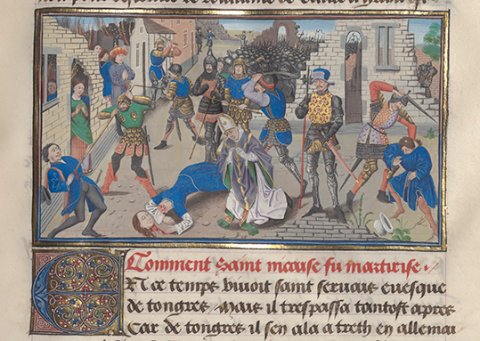 Comment saint nicaise fu martirise.
EN ce temps vivoit saint servais evesque
de tongres. mais il trespassa tantost apres
Car de tongres il sen ala a treth en allemai